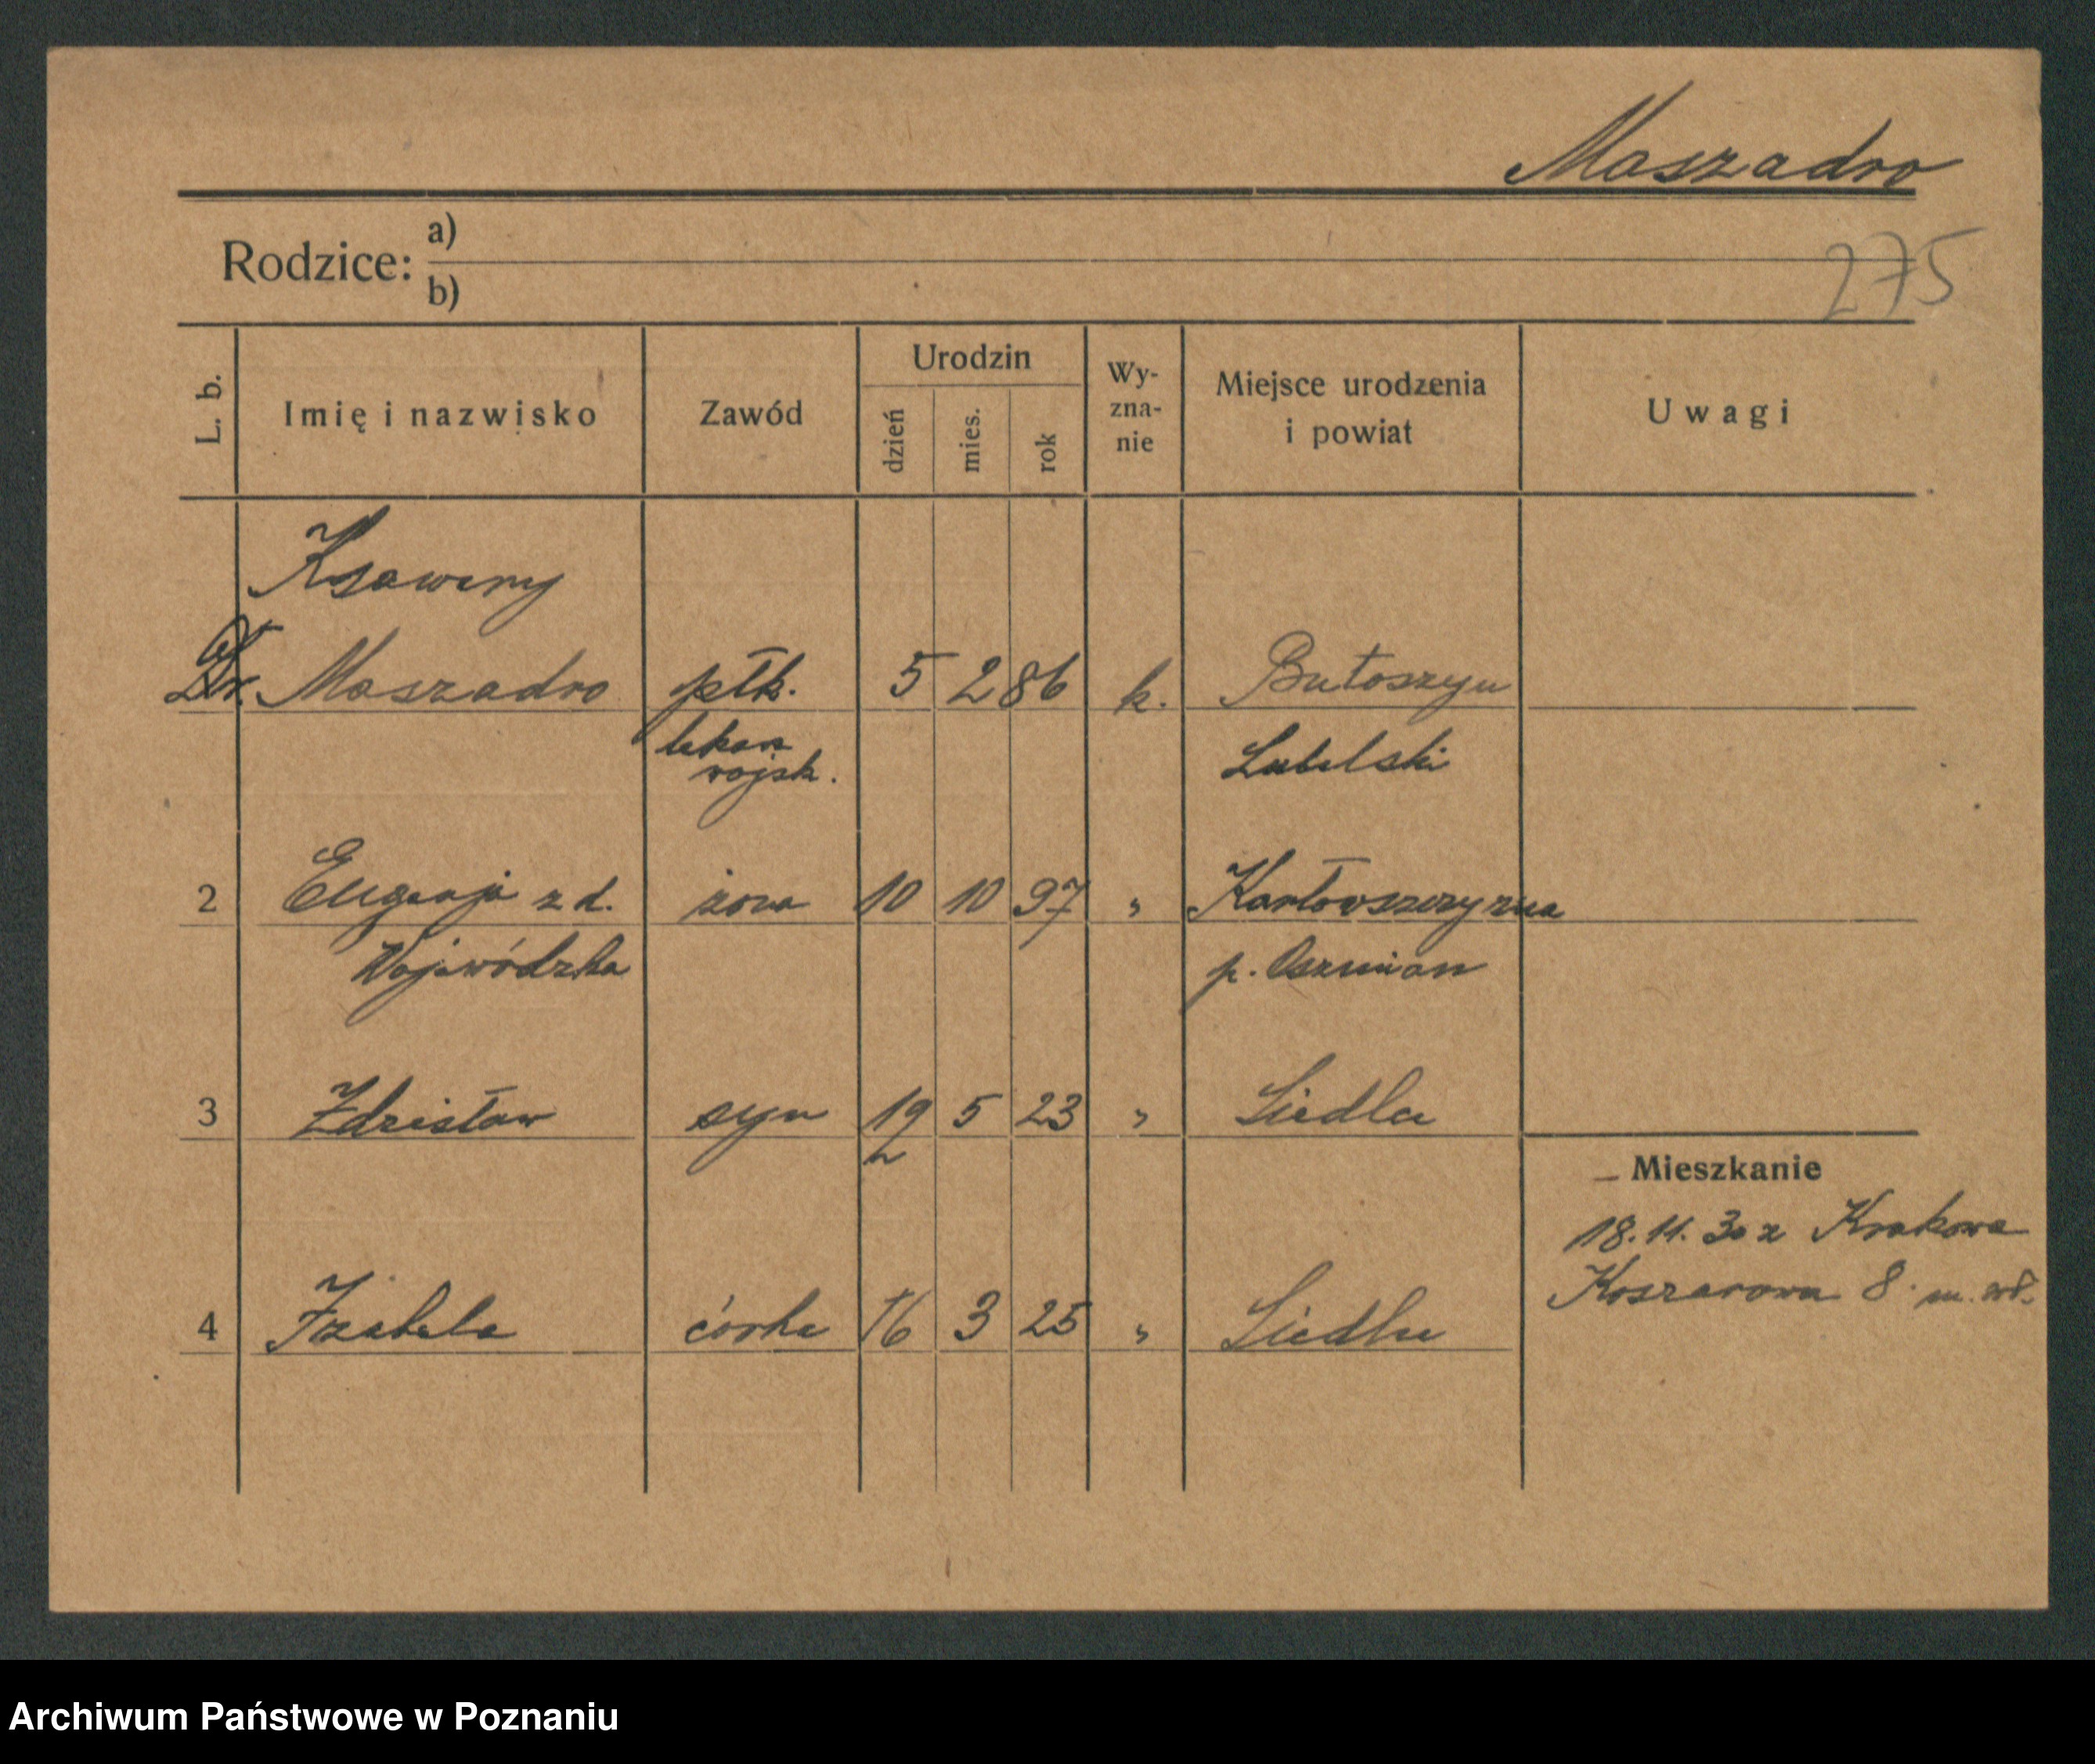 Maszadro
Rodzice: a)
b)
275
L. b. Imię i nazwisko Zawód Urodzin dzień mies. rok Wy-zna-nie Miejsce urodzenia i powiat Uwagi
Ksawery
Dr. Maszadro płk. 5 2 86 k. Butoszyn
lekarz wojsk. Lubelski
2 Eugenja z d. żona 10 10 97 " Karłowszczyzna
Wojewódzka p. Oszmian
3 Zdzisław syn 19 5 23 " Siedlce
Mieszkanie
18.11.30 z Krakowa
Koszarowa 8 m. wł.
4 Izabela córka 16 3 25 " Siedlce
Archiwum Państwowe w Poznaniu